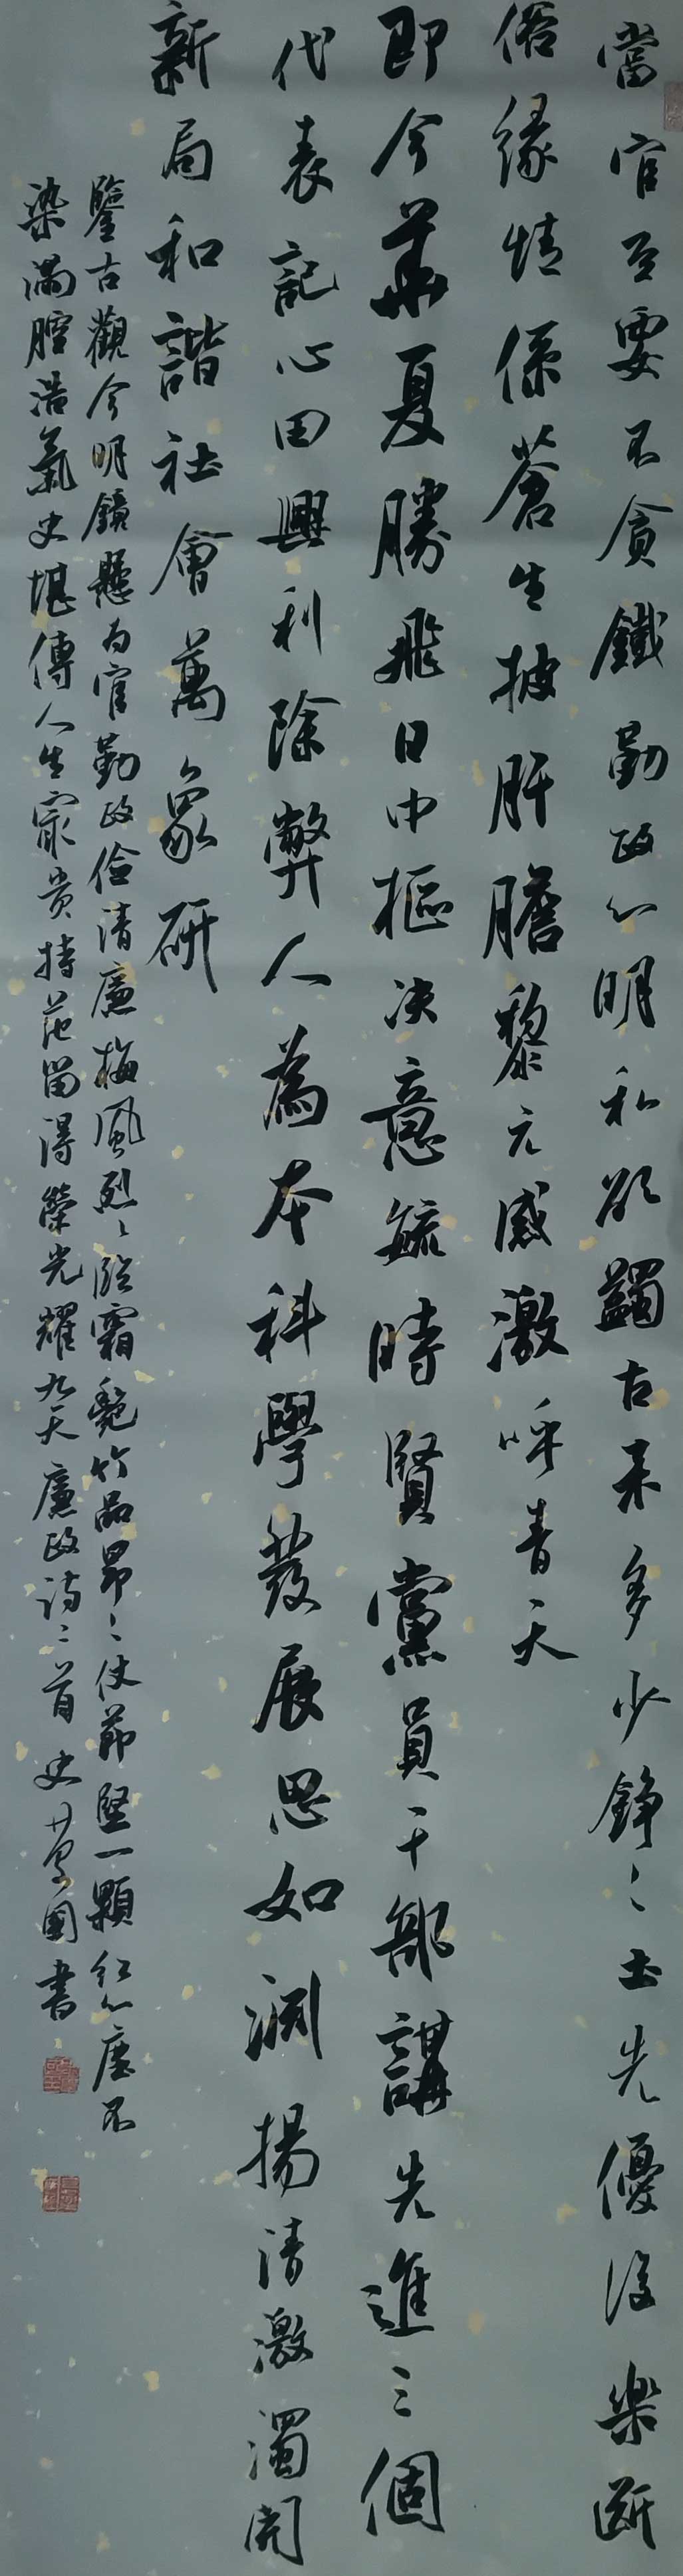 當官首要不貪鐵勤政心明私欲蠲古來多少錚〻士先優後樂斷
俗緣情係蒼生披肝膽黎元感激呼青天
即今華夏勝飛日中樞決意毓時賢黨員干部講先進三個
代表記心田興利除弊人為本科學發展思如淵揚清激濁開
新局和諧社會萬象研
鑒古觀今明鏡懸為官勤政儉清廉梅風烈〻臨霜艷竹品昂〻仗節堅一顆紅心塵不
染滿腔浩氣史堪傳人生最貴持范留得榮光耀九天廉政詩二首史國書